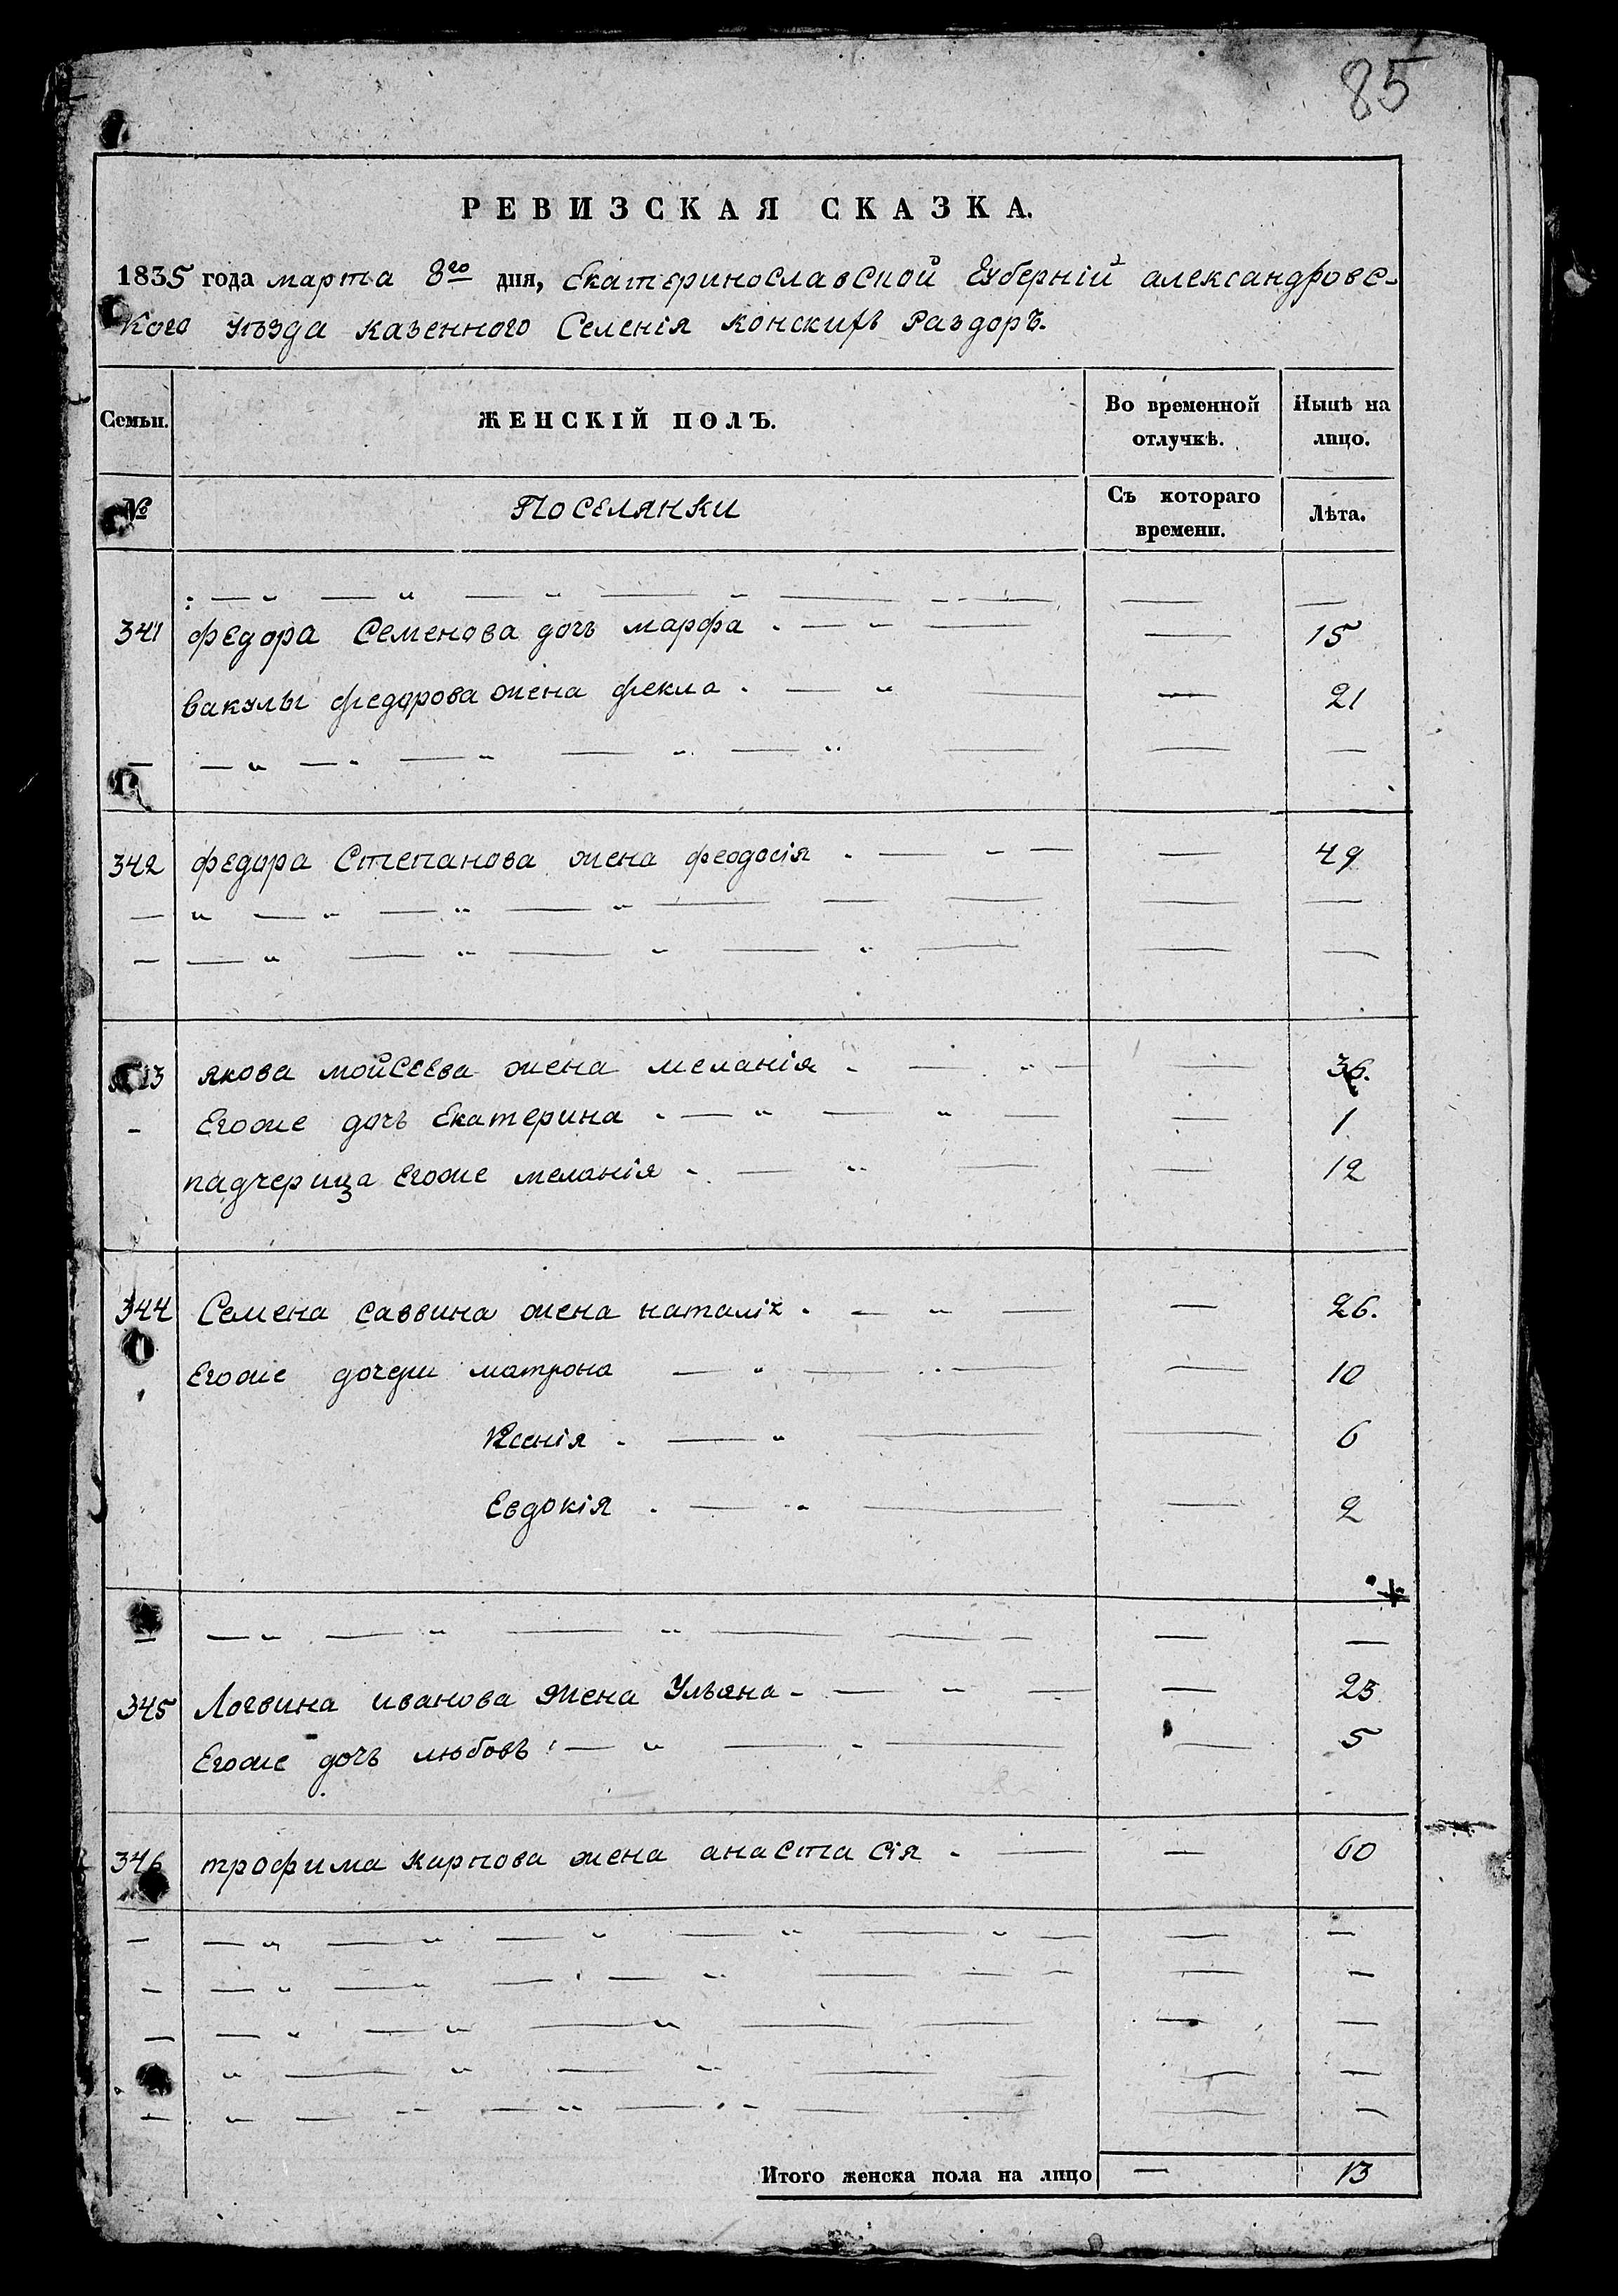 85
РЕВИЗСКАЯ СКАЗКА.
1835 года марта 8го дня, Екатеринославской Губерній александровс-
кого уѣзда казенного Селенія конскихъ Раздоръ.
Семьи. ЖЕНСКІЙ ПОЛЪ. Во временной отлучкѣ. Нынѣ на лицо.
№ Поселянки Съ котораго времени. Лѣта.
341 федора Семенова дочь марфа — 15
вакулы федорова жена фекла — 21
342 федора Степанова жена феодосія — 49
343 якова мойсеева жена меланія — 36.
Егоже дочь Екатерина — 1
падчерица Егоже меланія — 12
344 Семена саввина жена наталія — 26.
Егоже дочери матрона — 10
Ксенія — 6
Евдокія — 2
345 Логвина иванова жена Ульяна — 25
Егоже дочь любовь — 5
346 трофима карпова жена анастасія — 60
Итого женска пола на лицо — 13